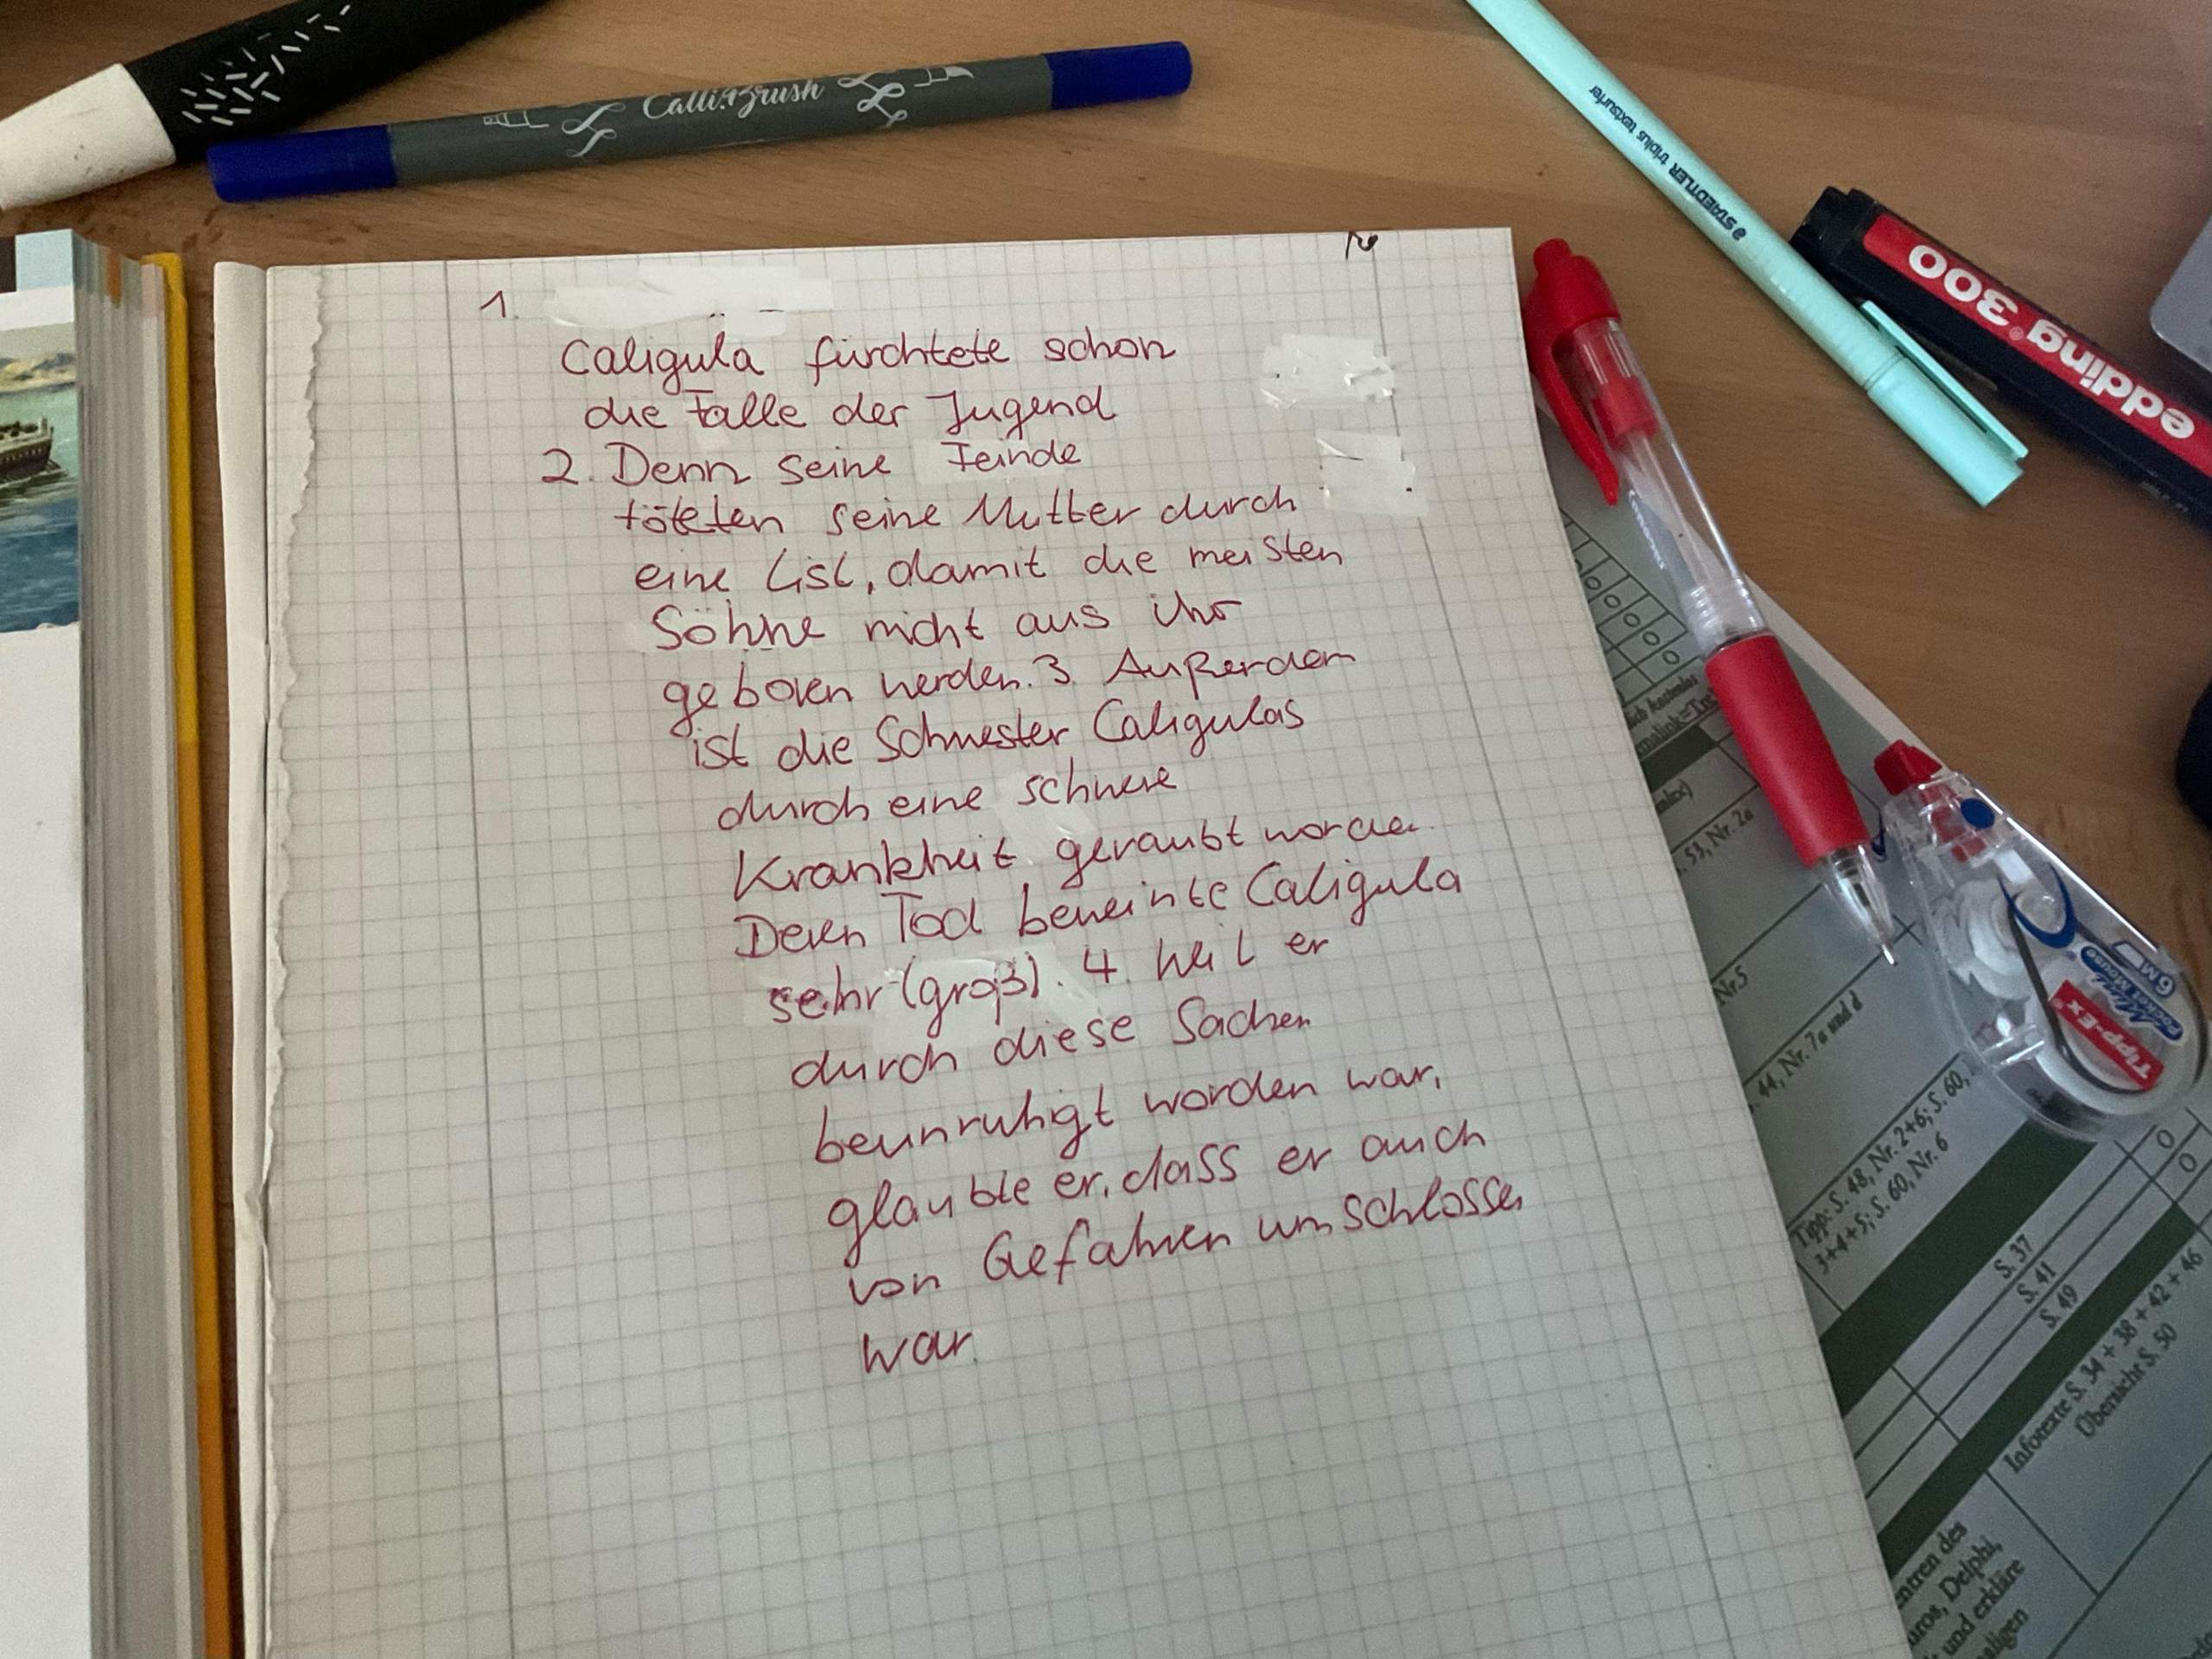 Calli.Brush
STAEDTLER triplus textsurfer
edding 300
1.
Caligula fürchtete schon
die Falle der Jugend
2. Denn seine Feinde
töteten seine Mutter durch
eine List, damit die meisten
Söhne nicht aus ihr
geboren werden. 3. Außerdem
ist die Schwester Caligulas
durch eine schwere
Krankheit geraubt worden.
Deren Tod beweinte Caligula
sehr (groß). 4. Weil er
durch diese Sachen
beunruhigt worden war,
glaubte er, dass er auch
von Gefahren umschlossen
war.
53, Nr. 2a
Nr. 5
44, Nr. 7a und d
Tipp: S. 48, Nr. 2+6; S. 60,
3+4+5; S. 60, Nr. 6
S. 37
S. 41
S. 49
Infotexte S. 34 + 38 + 42 + 46
Übersicht S. 50
des
Delphi,
und erkläre
Tipp-Ex
Mini
Pocket Mouse
6M